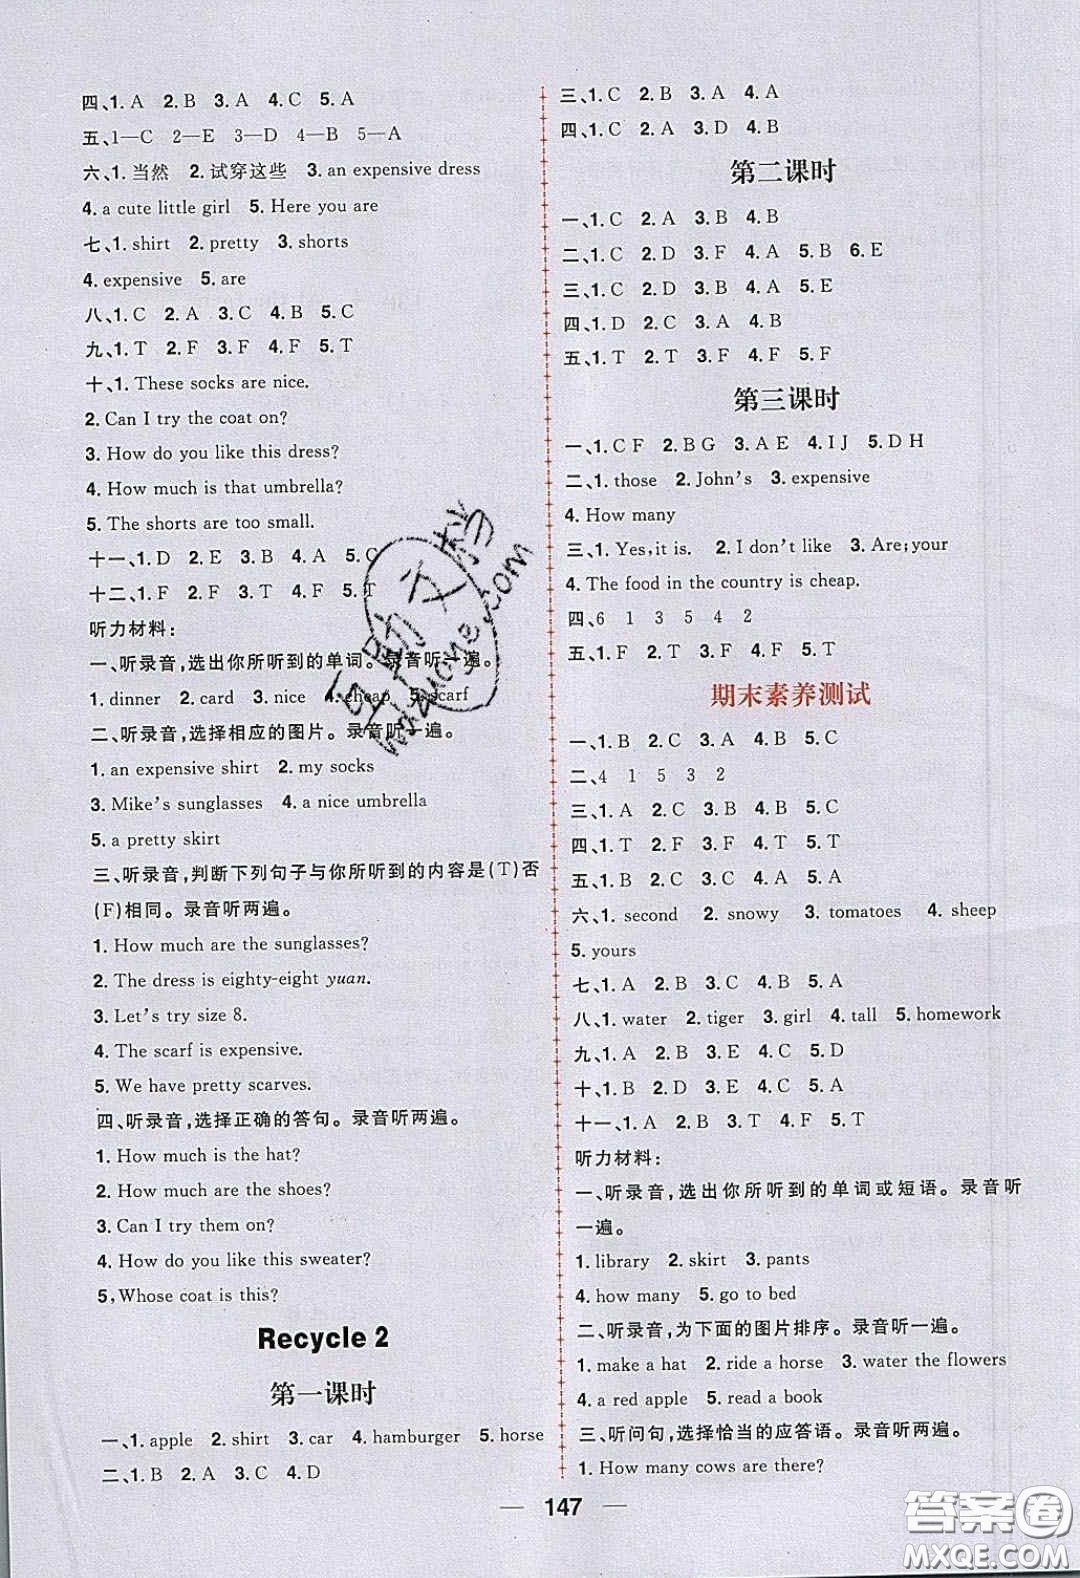 四、1. A 2. B 3. A 4. C 5. A
五、1—C 2—E 3—D 4—B 5—A
六、1. 当然 2. 试穿这些 3. an expensive dress
4. a cute little girl 5. Here you are
七、1. shirt 2. pretty 3. shorts
4. expensive 5. are
八、1. C 2. A 3. C 4. B 5. C
九、1. T 2. F 3. F 4. F 5. T
十、1. These socks are nice.
2. Can I try the coat on?
3. How do you like this dress?
4. How much is that umbrella?
5. The shorts are too small.
十一、1. D 2. E 3. B 4. A 5. C
十二、1. F 2. F 3. T 4. F 5. T
听力材料:
一、听录音,选出你所听到的单词。录音听一遍。
1. dinner 2. card 3. nice 4. cheap 5. scarf
二、听录音,选择相应的图片。录音听一遍。
1. an expensive shirt 2. my socks
3. Mike's sunglasses 4. a nice umbrella
5. a pretty skirt
三、听录音,判断下列句子与你所听到的内容是(T)否
(F)相同。录音听两遍。
1. How much are the sunglasses?
2. The dress is eighty-eight yuan.
3. Let's try size 8.
4. The scarf is expensive.
5. We have pretty scarves.
四、听录音,选择正确的答句。录音听两遍。
1. How much is the hat?
2. How much are the shoes?
3. Can I try them on?
4. How do you like this sweater?
5, Whose coat is this?
Recycle 2
第一课时
一、1. apple 2. shirt 3. car 4. hamburger 5. horse
二、1. B 2. A 3. C 4. D
三、1. C 2. B 3. A 4. A
四、1. C 2. A 3. D 4. B
第二课时
一、1. C 2. A 3. B 4. B
二、1. C 2. D 3. F 4. A 5. B 6. E
三、1. C 2. D 3. B 4. A 5. E
四、1. D 2. C 3. A 4. B
五、1. T 2. T 3. F 4. F 5. F
第三课时
一、1. C F 2. B G 3. A E 4. I J 5. D H
二、1. those 2. John's 3. expensive
4. How many
三、1. Yes, it is. 2. I don't like 3. Are; your
4. The food in the country is cheap.
四、6 1 3 5 4 2
五、1. F 2. T 3. F 4. F 5. T
期末素养测试
一、1. B 2. C 3. A 4. B 5. C
二、4 1 5 3 2
三、1. A 2. C 3. B 4. B 5. C
四、1. T 2. F 3. F 4. T 5. T
五、1. B 2. C 3. A 4. B 5. A
六、1. second 2. snowy 3. tomatoes 4. sheep
5. yours
七、1. A 2. B 3. C 4. B 5. A
八、1. water 2. tiger 3. girl 4. tall 5. homework
九、1. A 2. B 3. E 4. C 5. D
十、1. B 2. D 3. E 4. C 5. A
十一、1. A 2. B 3. T 4. F 5. T
听力材料:
一、听录音,选出你所听到的单词或短语。录音听
一遍。
1. library 2. skirt 3. pants
4. how many 5. go to bed
二、听录音,为下面的图片排序。录音听一遍。
1. make a hat 2. ride a horse 3. water the flowers
4. a red apple 5. read a book
三、听问句,选择恰当的应答语。录音听两遍。
1. How many cows are there?
— 147 —
答案圈
MXQE.COM